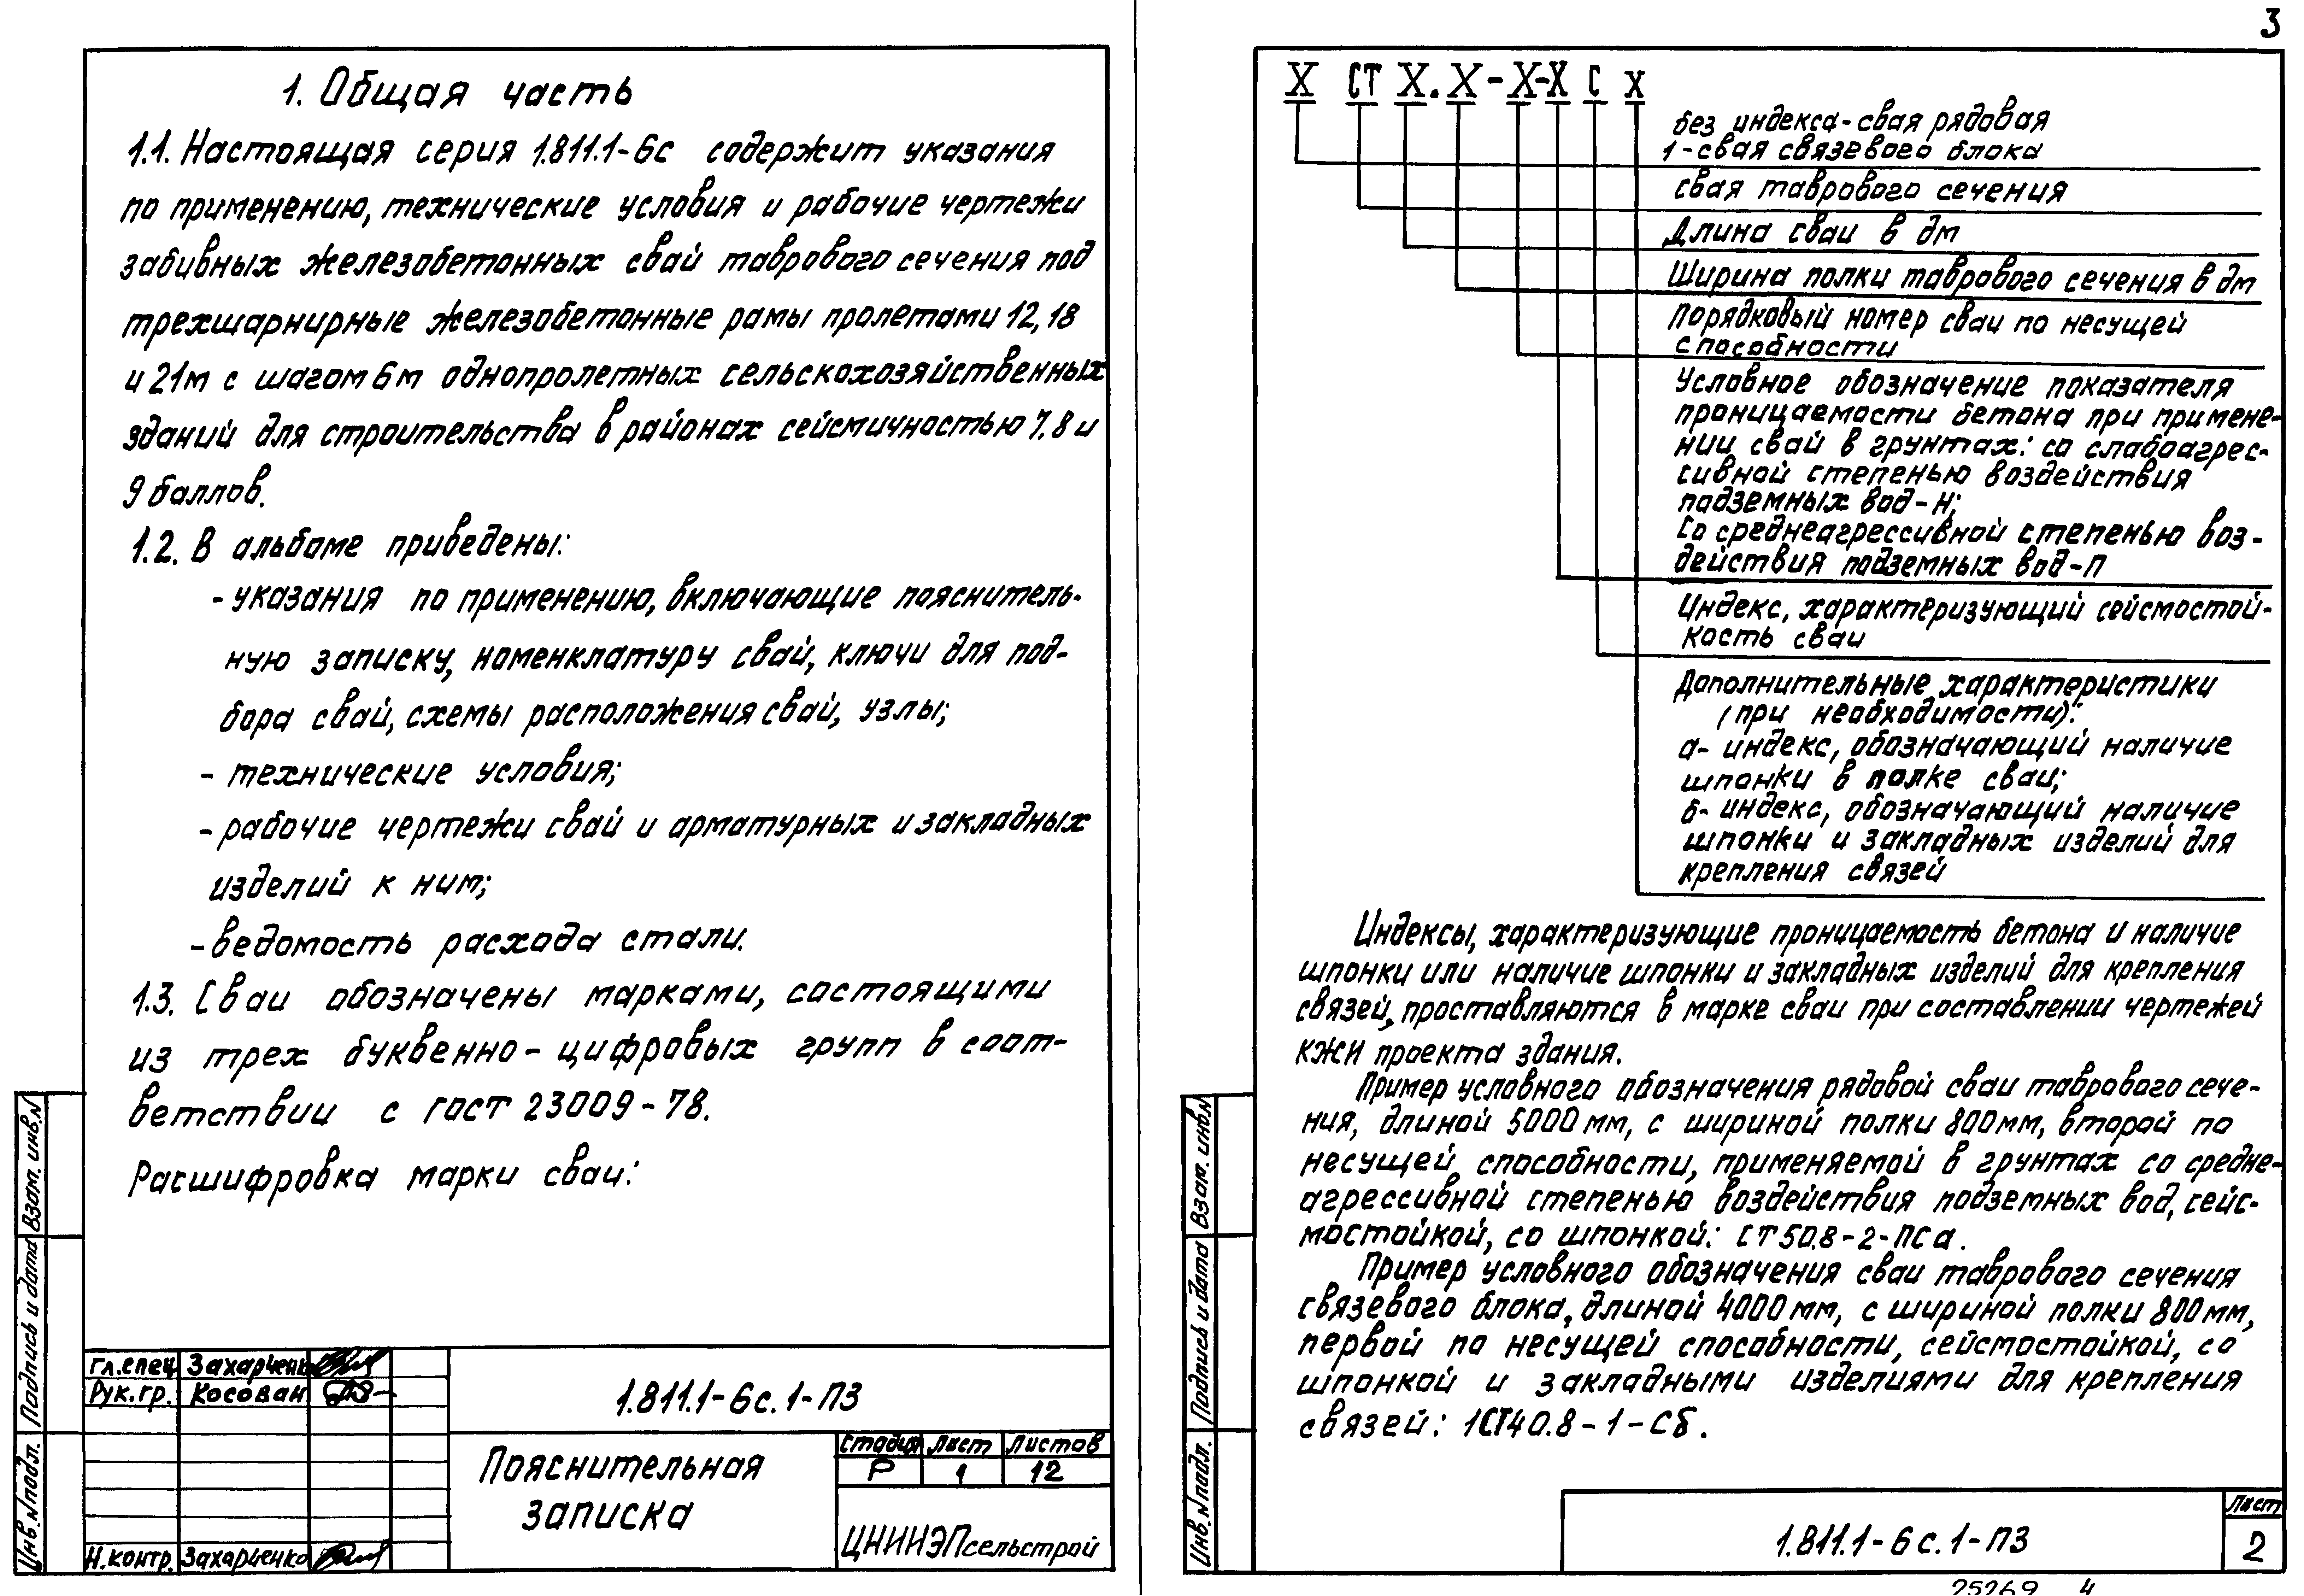 1. Общая часть
1.1. Настоящая серия 1.811.1-6с содержит указания
по применению, технические условия и рабочие чертежи
забивных железобетонных свай таврового сечения под
трехшарнирные железобетонные рамы пролетами 12, 18
и 21м с шагом 6м однопролетных сельскохозяйственных
зданий для строительства в районах сейсмичностью 7, 8 и
9 баллов.
1.2. В альбоме приведены:
- указания по применению, включающие пояснитель-
ную записку, номенклатуру свай, ключи для под-
бора свай, схемы расположения свай, узлы;
- технические условия;
- рабочие чертежи свай и арматурных и закладных
изделий к ним;
- ведомость расхода стали.
1.3. Сваи обозначены марками, состоящими
из трех буквенно-цифровых групп в соот-
ветствии с гост 23009-78.
Расшифровка марки сваи:
Взам. инв.N
Подпись и дата
Инв. N подл.
гл.спец Захарчень
Рук.гр. Косован
Н.контр. Захарченко
1.811.1-6с.1-ПЗ
Пояснительная
записка
стадия Лист Листов
Р 1 12
ЦНИИЭПсельстрой
3
Х СТ Х.Х-Х-Х С Х
без индекса-свая рядовая
1-свая связевого блока
свая таврового сечения
Длина сваи в дм
Ширина полки таврового сечения в дм
Порядковый номер сваи по несущей
способности
Условное обозначение показателя
проницаемости бетона при примене-
нии свай в грунтах: со слабоагрес-
сивной степенью воздействия
подземных вод-Н;
Со среднеагрессивной степенью воз-
действия подземных вод-П
Индекс, характеризующий сейсмостой-
кость сваи
Дополнительные характеристики
(при необходимости):
а- индекс, обозначающий наличие
шпонки в полке сваи;
б- индекс, обозначающий наличие
шпонки и закладных изделий для
крепления связей
Индексы, характеризующие проницаемость бетона и наличие
шпонки или наличие шпонки и закладных изделий для крепления
связей, проставляются в марке сваи при составлении чертежей
КЖИ проекта здания.
Пример условного обозначения рядовой сваи таврового сече-
ния, длиной 5000 мм, с шириной полки 800мм, второй по
несущей способности, применяемой в грунтах со средне-
агрессивной степенью воздействия подземных вод, сейс-
мостойкой, со шпонкой: СТ50.8-2-ПСа.
Пример условного обозначения сваи таврового сечения
связевого блока, длиной 4000 мм, с шириной полки 800 мм,
первой по несущей способности, сейсмостойкой, со
шпонкой и закладными изделиями для крепления
связей: 1СТ40.8-1-Сб.
Взам. инв.N
Подпись и дата
Инв. N подл.
1.811.1-6с.1-ПЗ
Лист
2
25269 4